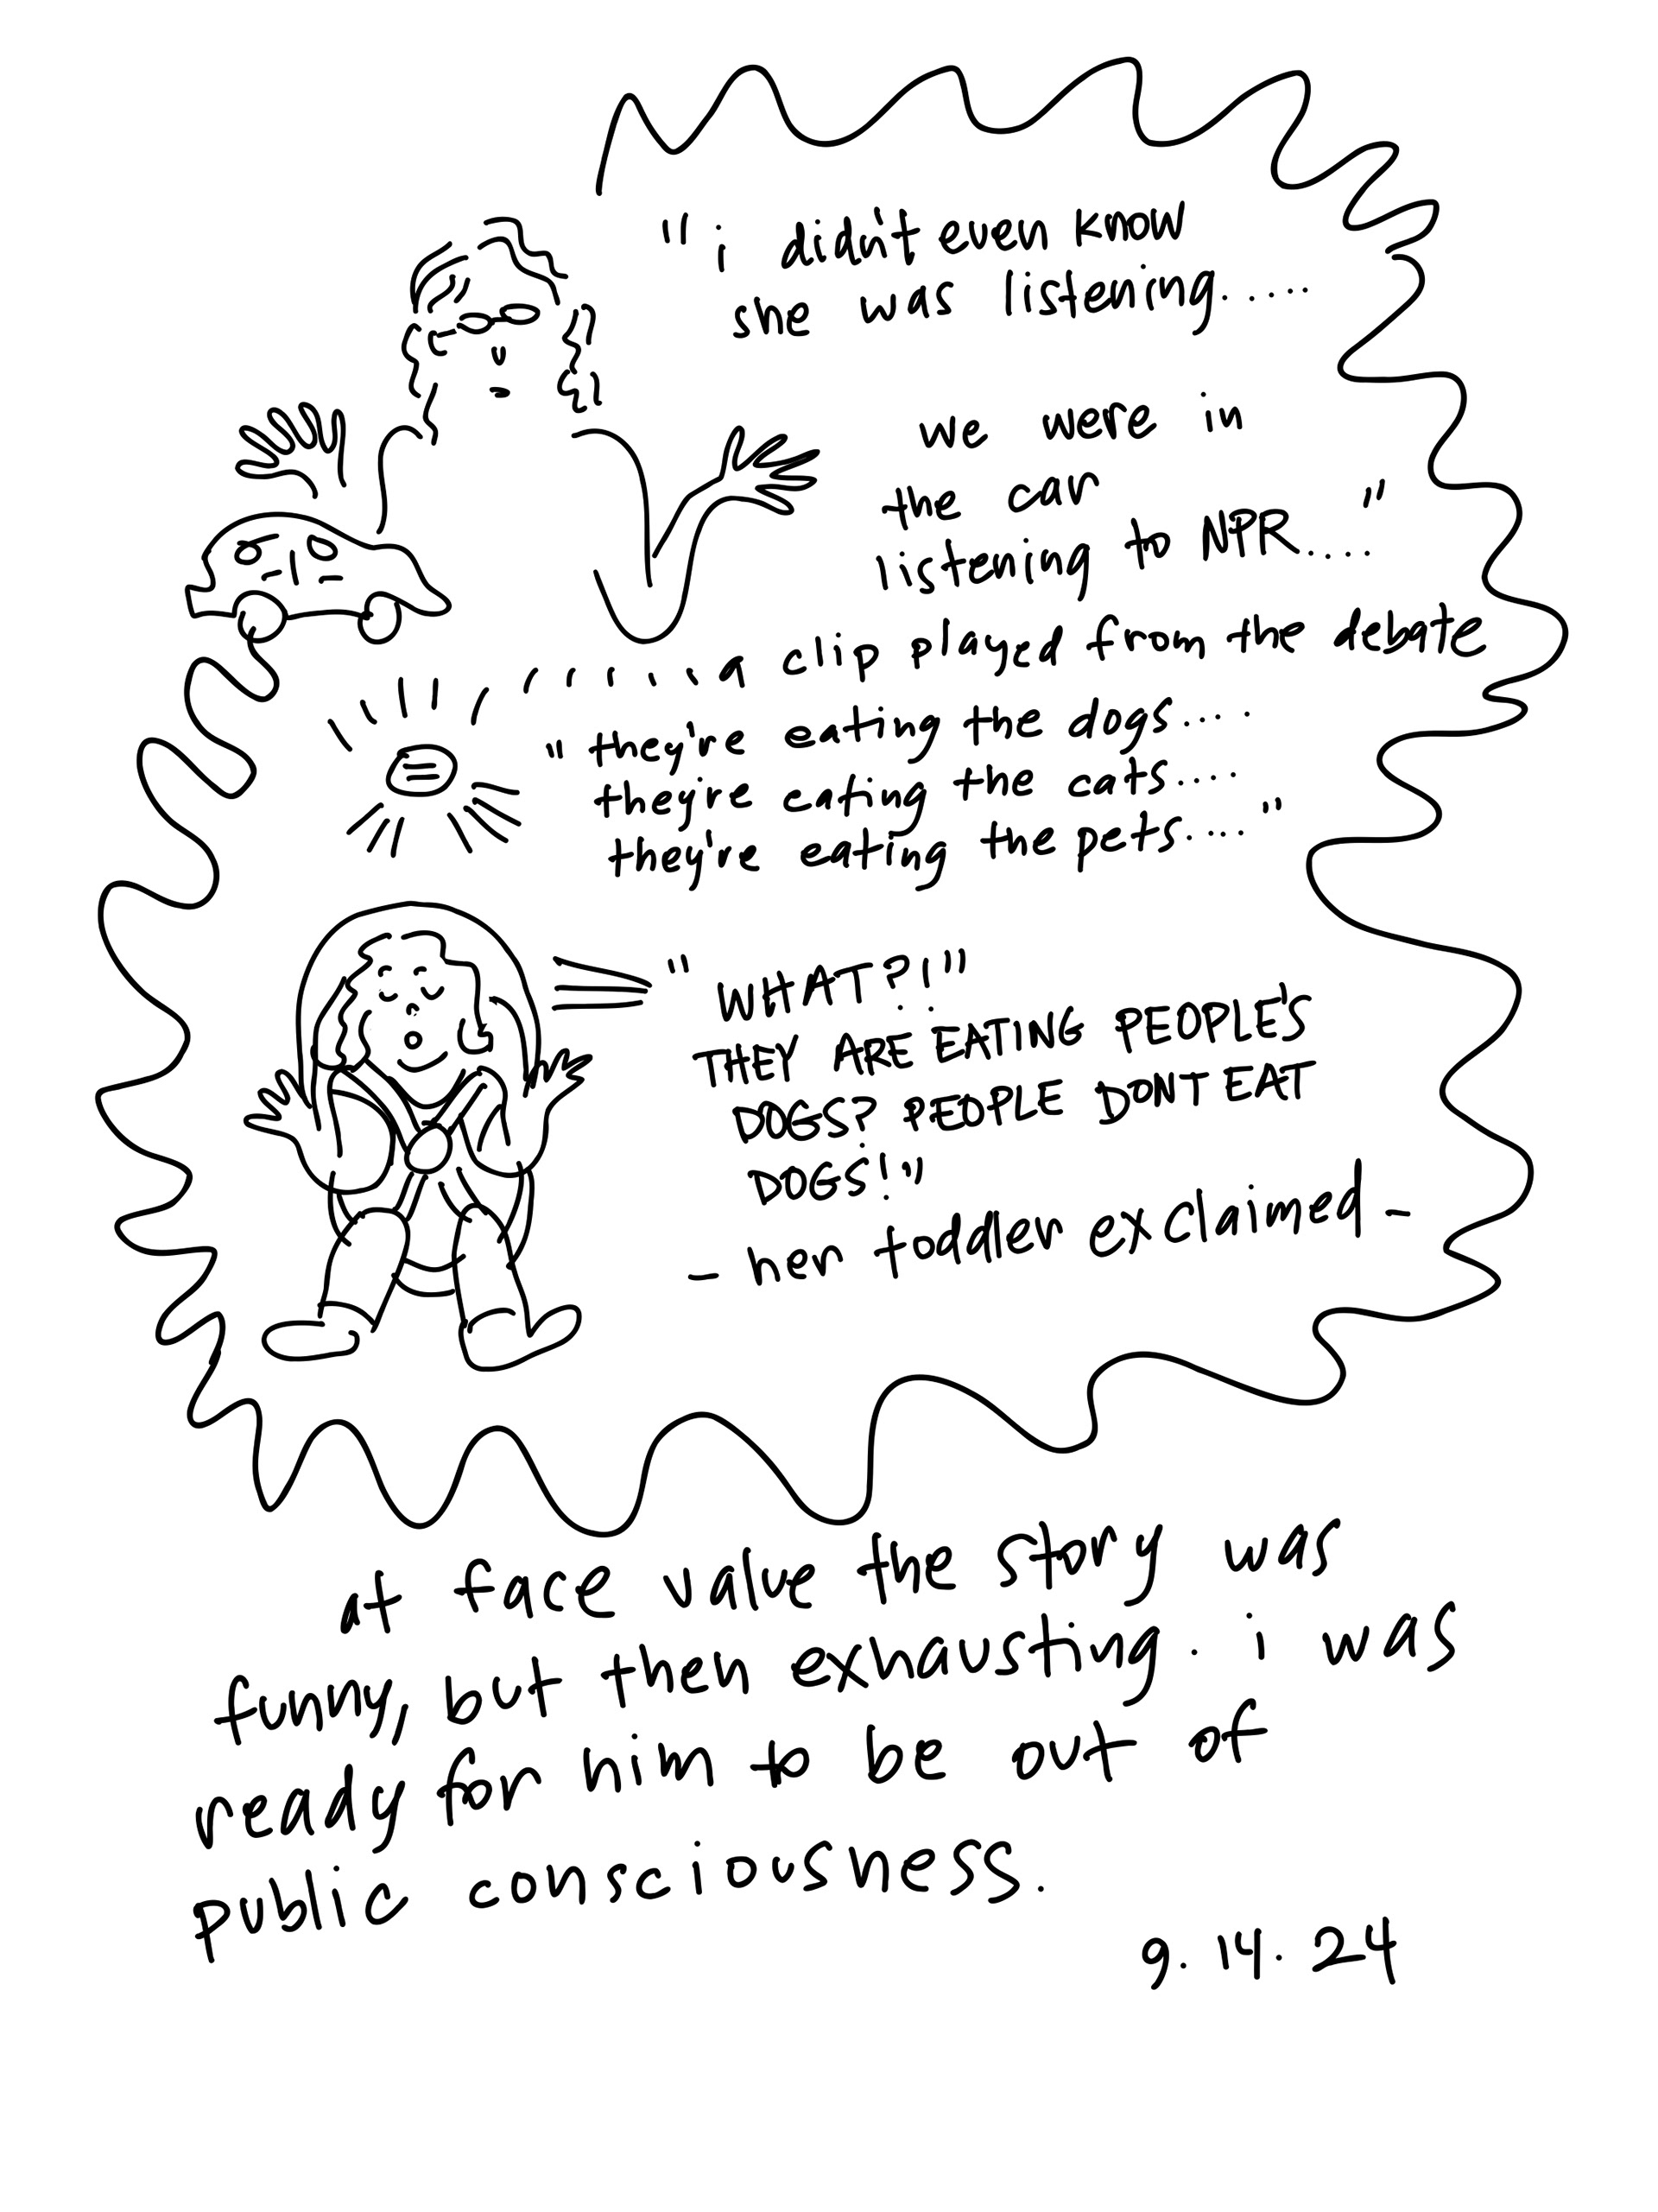 "i didn't even know
she was listening.....
we were in
the car
listening to NPR....."
.....a clip played from the debate
"they're eating the dogs....
they're eating the cats....
they're eating the pets...."
"WHAT?!"
THEY ARE EATING PEOPLE'S
DOGS? PEOPLE DONT EAT
DOGS!"
- her toddler exclaimed -
at face value the story was
funny, but then exhausting. i was
ready for him to be out of
public consciousness.
9.14.24